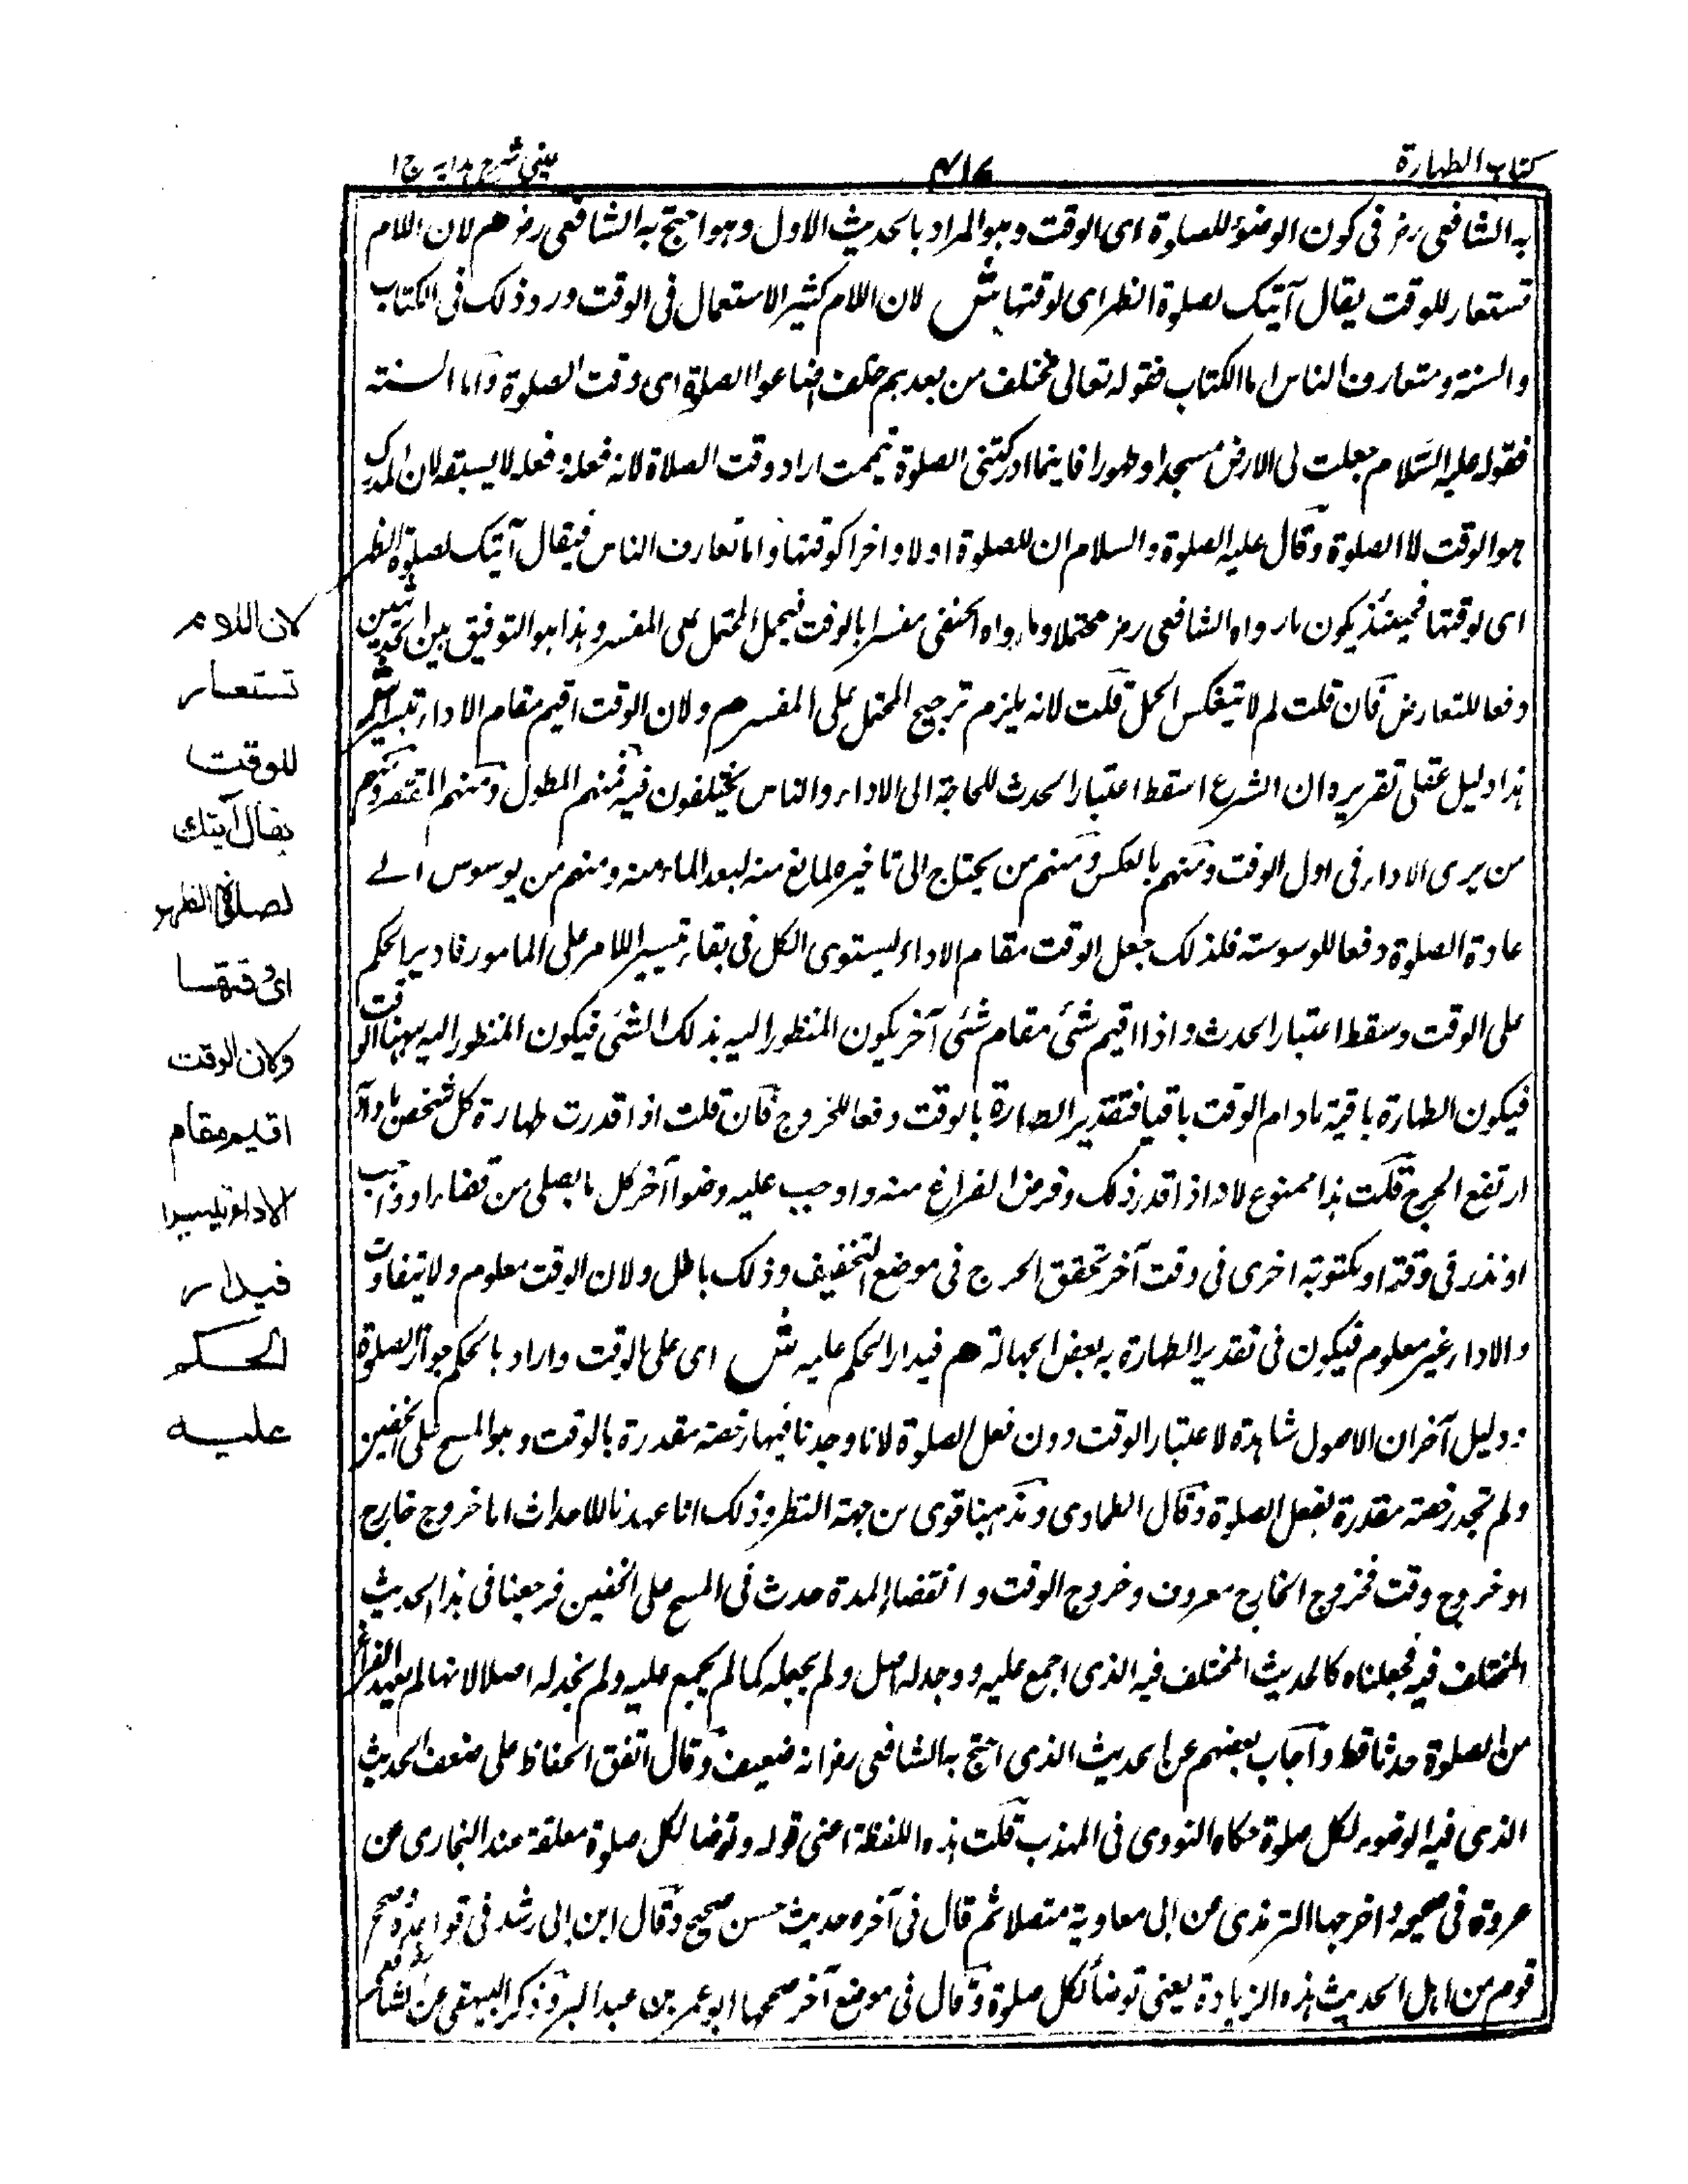 كتاب الطهارة
٤١٧
عيني شرح هدايه ج ١
به الشافعى رض فى كون الوضوء للصلوة اى الوقت وهو المراد بالحديث الاول وهو احتج به الشافعى رض هم لان اللام
تستعار للوقت يقال آتيك لصلوة الظهر اى لوقتها ش لان اللام كثير الاستعمال فى الوقت ورد ذلك فى الكتاب
والسنة ومتعارف الناس اما الكتاب فقوله تعالى فخلف من بعدهم خلف اضاعوا الصلوة اى وقت الصلوة واما السنته
فقوله عليه السلام جعلت لى الارض مسجدا وطهورا فاينما ادركتنى الصلوة تيممت اراد وقت الصلاة لانه فعله وفعله لا يسبقه لان المدرك
هو الوقت لا الصلوة وقال عليه الصلوة والسلام ان للصلوة اولا واخرا كوقتها واما تعارف الناس فيقال آتيك لصلوة الظهر
اى لوقتها فحينئذ يكون مارواه الشافعى رض محتملا وما رواه الحنفى مفسرا بالوقت فيحمل المحتمل على المفسر وهذا هو التوفيق بين الحديثين
دفعا للتعارض فان قلت لم لا ينعكس الحمل قلت لانه يلزم ترجيح المحتمل على المفسر هم ولان الوقت اقيم مقام الاداء تيسيرا ش
هذا دليل عقلى تقريره ان الشرع اسقط اعتبار الحدث للحاجة الى الاداء والناس يختلفون فيه فمنهم المطول ومنهم المقتصر ومنهم
من يرى الاداء فى اول الوقت ومنهم بالعكس ومنهم من يحتاج الى تاخيره لمانع منه لبعد الماء منه ومنهم من يوسوس الے
عادة الصلوة دفعا للوسوسته فلذلك جعل الوقت مقام الاداء ليستوى الكل فى بقاء تيسير اللامر على المامور فادير الحكم
على الوقت وسقط اعتبار الحدث واذا اقيم شئى مقام شئى آخر يكون المنظور اليه بذلك الشئى فيكون المنظور اليه ههنا الوقت
فيكون الطهارة باقية مادام الوقت باقيا فتقدير الطهارة بالوقت دفعا للخروج فان قلت اذا قدرت طهارة كل شخص بادائه
ارتفع الحرج قلت هذا ممنوع لانه اذا قدر ذلك وفرض الفراغ منه واوجب عليه وضوأ آخر كل ما يصلى من قضاء او واجب
او نذر فى وقته او مكتوبه اخرى فى وقت آخر تحقق الحرج فى موضع التخفيف وذلك باطل ولان الوقت معلوم ولا يتفاوت
والاداء غير معلوم فيكون فى تقدير الطهارة به بعض الجهالة هم فيدار الحكم عليه ش اى على الوقت واراد بالحكم جواز الصلوة
ودليل آخر ان الاصول شاهدة لاعتبار الوقت دون فعل الصلوة لانا وجدنا فيها رخصته مقدرة بالوقت وهو المسح على الخفين
ولم تجد رخصته مقدرة بفعل الصلوة وقال الطحاوى ومذهبنا قوى من جهة النظر وذلك انا عهدنا للاحداث اما خروج خارج
او خروج وقت فخروج الخارج معروف وخروج الوقت وانقضاء المدة حدث فى المسح على الخفين فرجعنا فى هذا الحديث
المختلف فيه فجعلناه كالحديث المختلف فيه الذى اجمع عليه ووجد له اصل ولم يجعله كما لم يجمع عليه ولم نجد له اصلا لانها لم يعهد الفراغ
من الصلوة حدثا قط وآجاب بعضهم عن الحديث الذى احتج به الشافعى رض انه ضعيف وقال اتفق الحفاظ على ضعف الحديث
الذى فيه الوضوء لكل صلوة حكاه النووى فى المهذب قلت هذه اللفظة اعنى قوله وتوضا لكل صلوة معلقة عند البخارى عن
عروة فى صحيحه واخرجها الترمذى عن ابى معاوية متصلا ثم قال فى آخره حديث حسن صحيح وقال ابن ابى رشد فى قواعده صحح
قوم من اهل الحديث هذه الزيادة يعنى توضأ لكل صلوة وقال فى موضع آخر صححها ابو عمر بن عبد البر وذكر البيهقى عن الشافعى
لان اللام
تستعار
للوقت
يقال آتيك
لصلوة الظهر
اى وقتها
ولان الوقت
اقيم مقام
الاداء تيسيرا
فيدار
الحكم
عليه